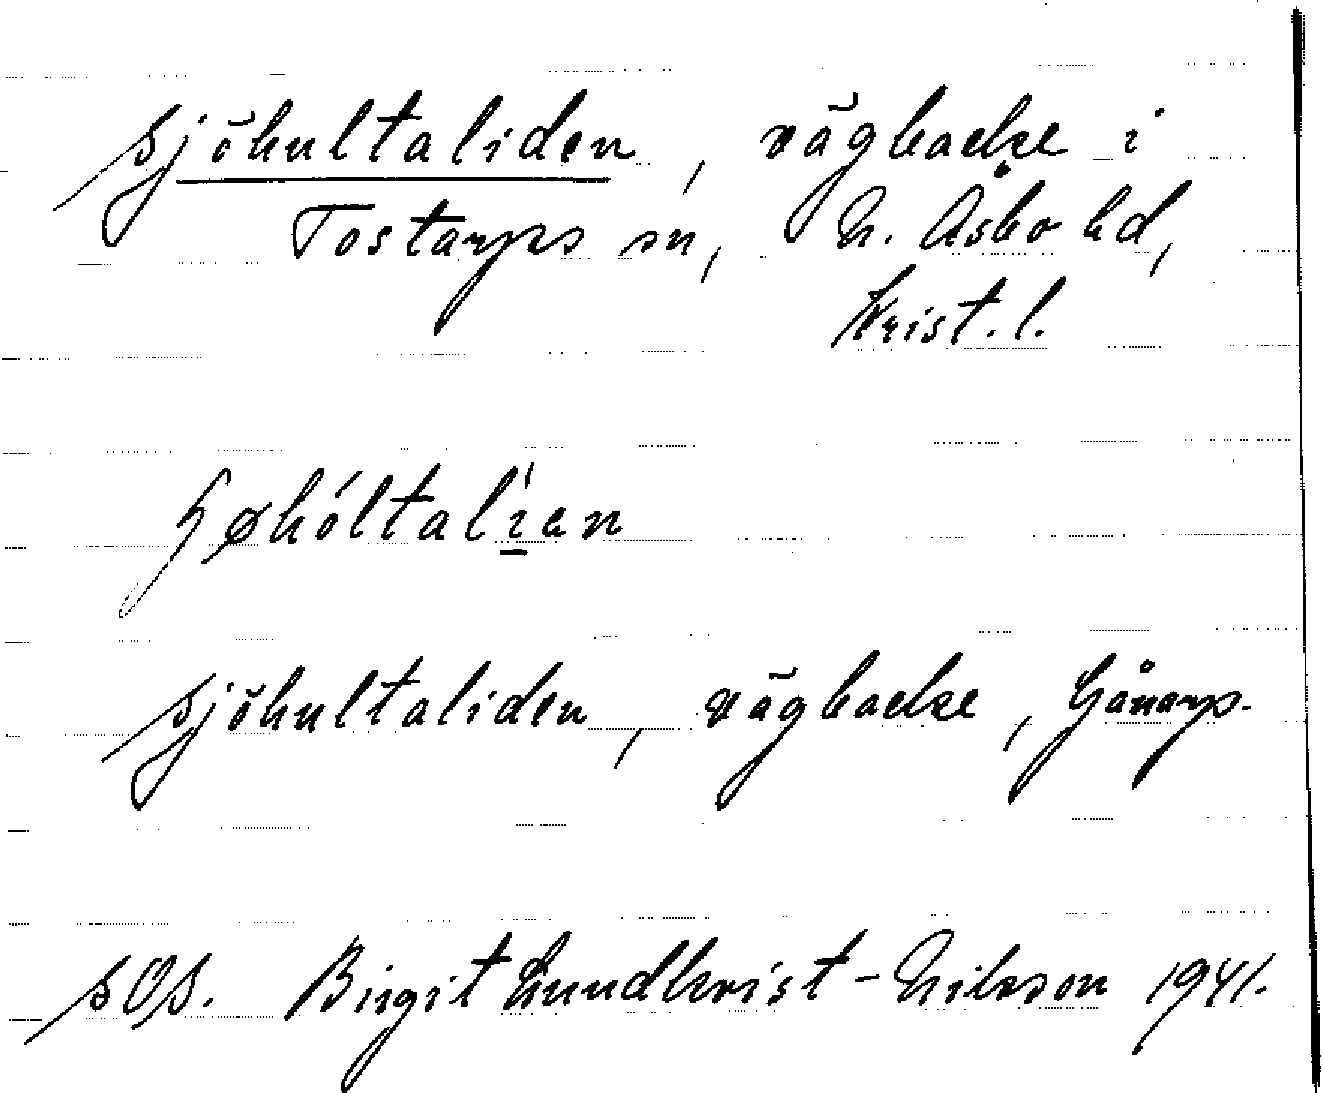 Sjöhultaliden, vägbacke i
Tostarps sn, N. Åsbo hd,
Krist. l.
ɧøhóltali̱en
Sjöhultaliden, vägbacke, Gånarp.
SOS. Birgit Lundkvist-Nilsson 1941.